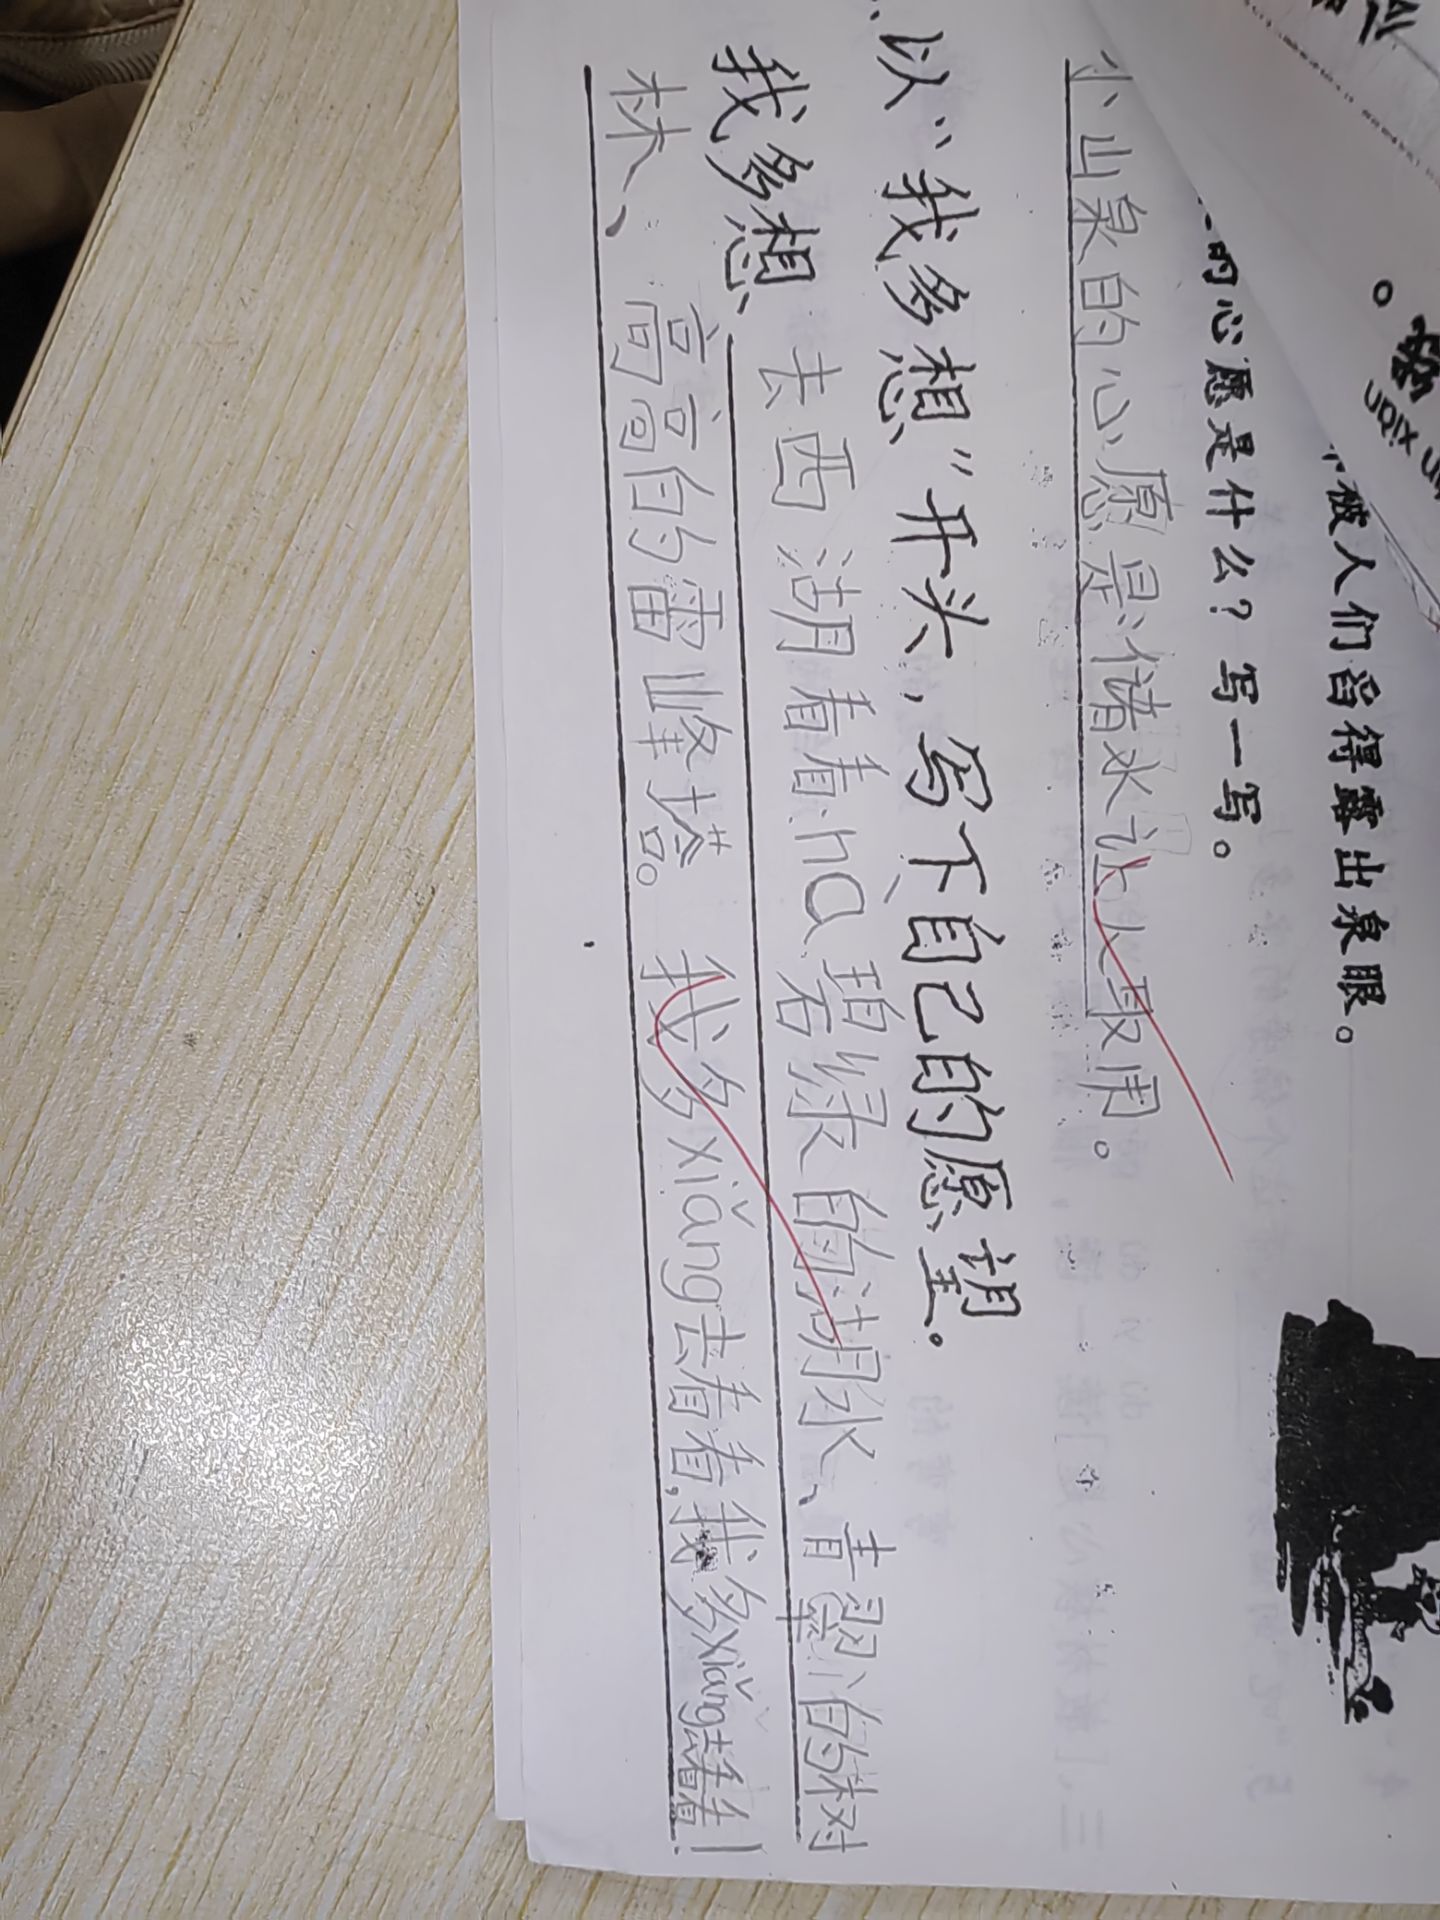 被人们舀得露出泉眼。
的心愿是什么？写一写。
小山泉的心愿是储水让人取用。
以“我多想”开头，写下自己的愿望。
我多想去西湖看看，nà碧绿的湖水、青翠的树
林、高高的雷峰塔。我多xiǎng去看看，我多xiǎng去看看！